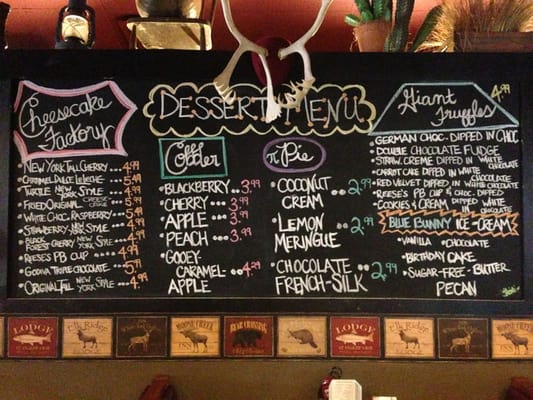 DESSERT MENU
Cheesecake
Factory
NEW YORK TALL CHERRY 4.99
CARAMEL DULCE LE LECHE 5.49
TURTLE NEW YORK STYLE 4.99
FRIED ORIGINAL CHEESE CAKE 5.49
WHITE CHOC. RASPBERRY 5.49
STRAWBERRY NEW YORK STYLE 4.99
BLACK FOREST CHERRY NEW YORK STYLE 4.99
REESE'S PB CUP 4.99
GODIVA TRIPLE CHOCOLATE 5.49
ORIGINAL TALL NEW YORK STYLE 4.99
COBBLER
BLACKBERRY... 3.99
CHERRY... 3.99
APPLE... 3.99
PEACH... 3.99
GOOEY-
CARAMEL- 4.29
APPLE
π Pie
COCONUT 2.99
CREAM
LEMON 2.99
MERINGUE
CHOCOLATE 2.99
FRENCH-SILK
Giant Truffles 4.99
GERMAN CHOC. DIPPED IN CHOC
DOUBLE CHOCOLATE FUDGE
STRAW. CREME DIPPED IN WHITE CHOCOLATE
CARROT CAKE DIPPED IN WHITE CHOCOLATE
RED VELVET DIPPED IN WHITE CHOCOLATE
REESE'S PB CUP & CHOC. DIPPED
COOKIES & CREAM DIPPED IN WHITE CHOCOLATE
BLUE BUNNY ICE-CREAM
VANILLA CHOCOLATE
BIRTHDAY CAKE
SUGAR-FREE-BUTTER
PECAN
LODGE
ELK RIDGE
MOOSE CREEK
BEAR CROSSING
LODGE
ELK RIDGE
MOOSE CREEK